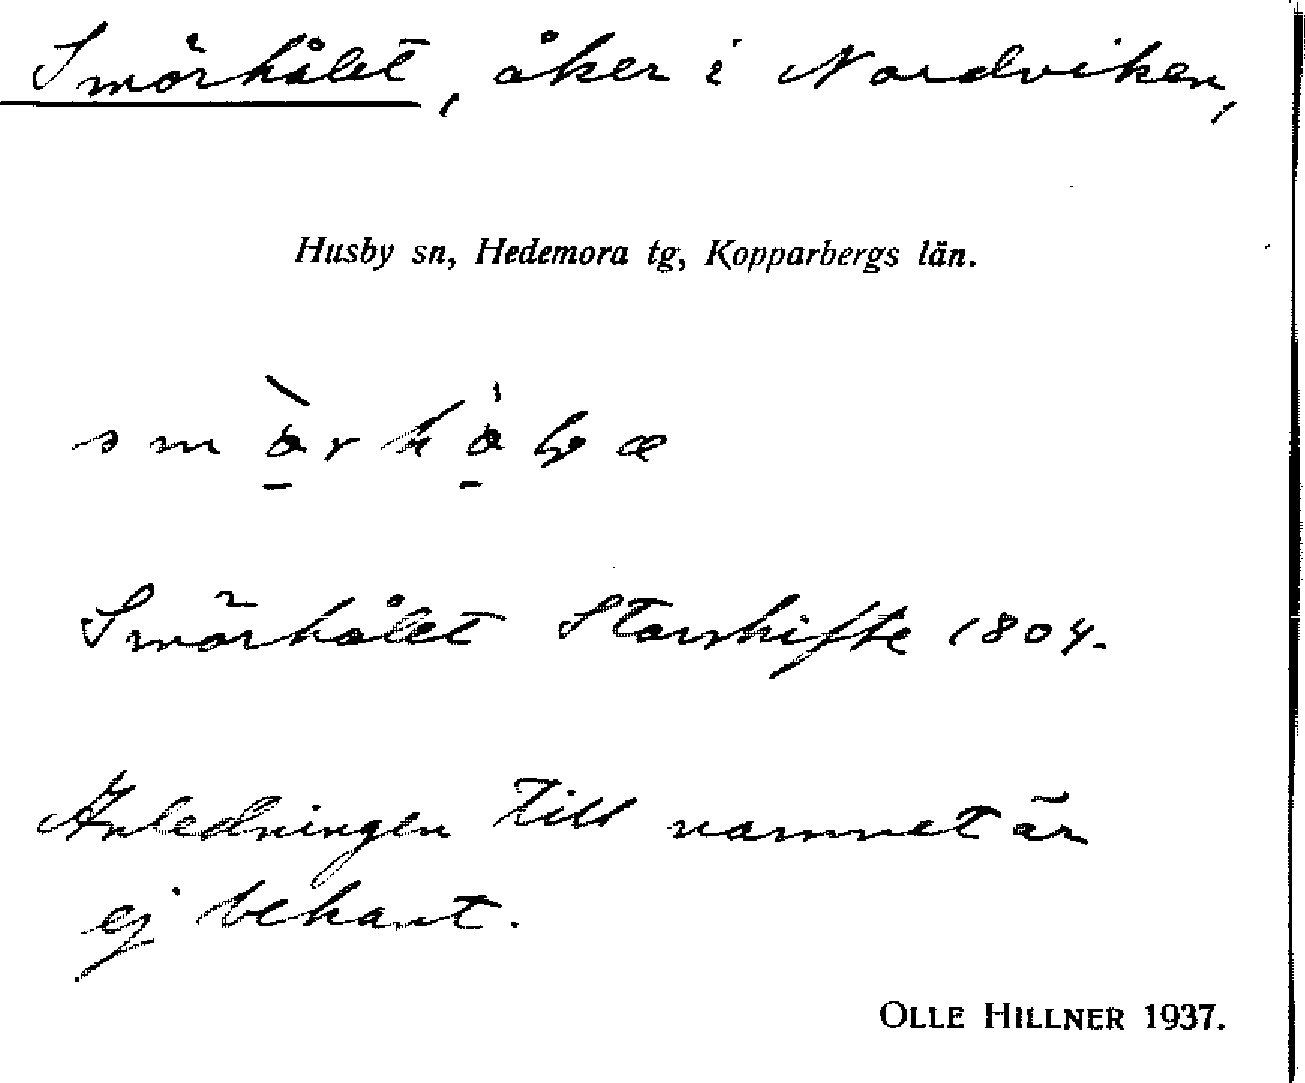 Smörhålet, åker i Nordviken,
Husby sn, Hedemora tg, Kopparbergs län.
Smörhålet Storskifte 1804.
Anledningen till namnet är
ej bekant.
OLLE HILLNER 1937.